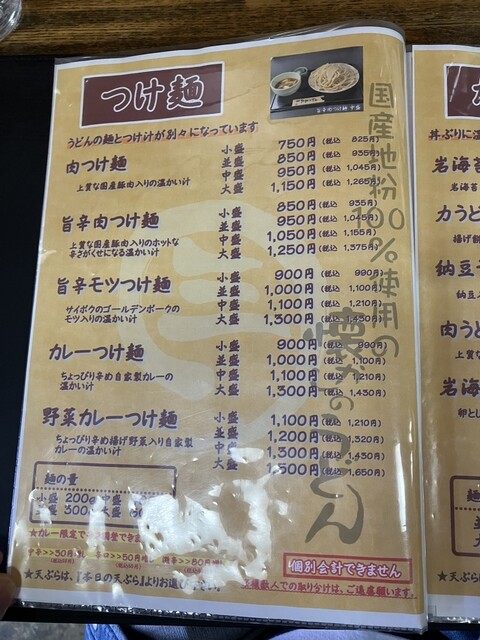 つけ麺
旨辛肉つけ麺 中盛
うどんの麺とつけ汁が別々になっています
国産地粉100%使用の
肉つけ麺
上質な国産豚肉入りの温かい汁
小盛 750円(税込 825円)
並盛 850円(税込 935円)
中盛 950円(税込 1,045円)
大盛 1,150円(税込 1,265円)
旨辛肉つけ麺
上質な国産豚肉入りのホットな
辛さがくせになる温かい汁
小盛 850円(税込 935円)
並盛 950円(税込 1,045円)
中盛 1,050円(税込 1,155円)
大盛 1,250円(税込 1,375円)
旨辛モツつけ麺
サイボクのゴールデンポークの
モツ入りの温かい汁
小盛 900円(税込 990円)
並盛 1,000円(税込 1,100円)
中盛 1,100円(税込 1,210円)
大盛 1,300円(税込 1,430円)
カレーつけ麺
ちょっぴり辛め自家製カレーの
温かい汁
小盛 900円(税込 990円)
並盛 1,000円(税込 1,100円)
中盛 1,100円(税込 1,210円)
大盛 1,300円(税込 1,430円)
野菜カレーつけ麺
ちょっぴり辛め揚げ野菜入り自家製
カレーの温かい汁
小盛 1,100円(税込 1,210円)
並盛 1,200円(税込 1,320円)
中盛 1,300円(税込 1,430円)
大盛 1,500円(税込 1,650円)
うどん
麺の量
小盛 200
並盛 300 大盛
★カレー限定で
30円 50円 80円
★天ぷらは、『本日の天ぷら』よりお選び
個別会計できません
での取り分けは、ご遠慮願います。
丼ぶりに温
岩海苔
岩海苔
力うど
揚げ餅
納豆
納豆入
肉うど
上質な
岩海
卵とし
麺
★天ぷらは